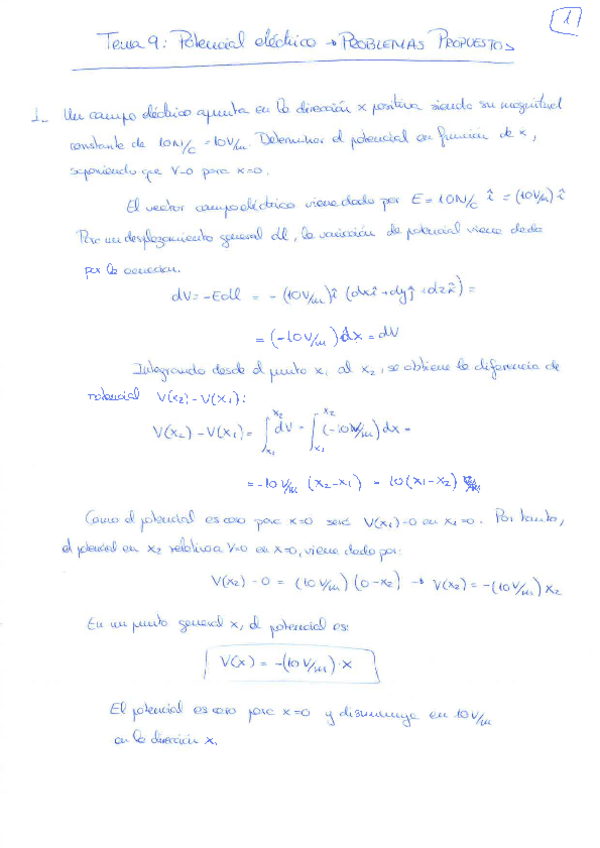 1
Tema 9: Potencial eléctrico → PROBLEMAS PROPUESTOS
1- Un campo eléctrico apunta en la dirección x positiva siendo su magnitud
constante de 10N/C = 10V/m. Determinar el potencial en función de x,
suponiendo que V=0 para x=0.
El vector campo eléctrico viene dado por E = 10N/C î = (10V/m) î
Para un desplazamiento general dl, la variación de potencial viene dada
por la ecuación.
dV = -Edl = -(10V/m) î (dxî + dyĵ + dzk̂) =
= (-10V/m) dx = dV
Integrando desde el punto x₁ al x₂, se obtiene la diferencia de
potencial V(x₂) - V(x₁):
V(x₂) - V(x₁) = ∫ₓ₁ˣ² dV = ∫ₓ₁ˣ² (-10V/m) dx =
= -10V/m (x₂-x₁) = 10(x₁-x₂) V/m
Como el potencial es cero para x=0 será V(x₁)=0 en x₁=0. Por tanto,
el potencial en x₂ relativo a V=0 en x=0, viene dado por:
V(x₂) - 0 = (10V/m) (0-x₂) → V(x₂) = -(10V/m) x₂
En un punto general x, el potencial es:
V(x) = -(10V/m)·x
El potencial es cero para x=0 y disminuye en 10V/m
en la dirección x.